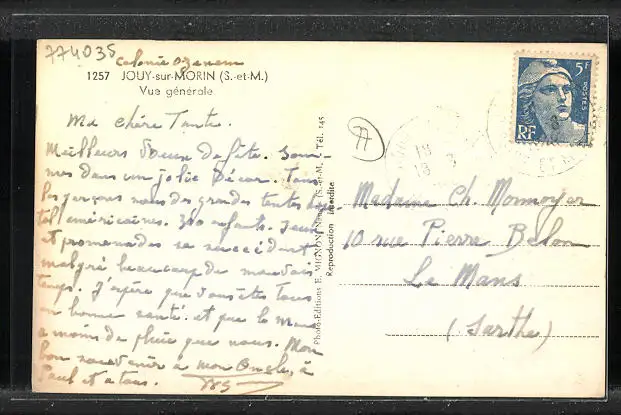 774035
Colonie Ozanam
1257 JOUY-sur-MORIN (S.-et-M.)
Vue générale
Ma chère Tante.
Meilleurs Voeux de fête. Som-
mes dans un joli Décor. Tous
les garçons sous des grandes tentes
américaines. 300 enfants. Jeux
et promenades se succèdent
malgré beaucoup de mauvais
temps. J'espère que vous êtes tous
en bonne santé. et que le Mans
a moins de pluie que nous. Mon
bon souvenir à mon Oncle, à
Paul et a tous.
Photo-Editions E. MIGNON, Nangis (S.-et-M.) Tél. 145
Reproduction interdite
77
5F
POSTES
RF
19
13
8
ET M
Madame Ch. Monnoyer
10 rue Pierre Belon
Le Mans
(Sarthe)